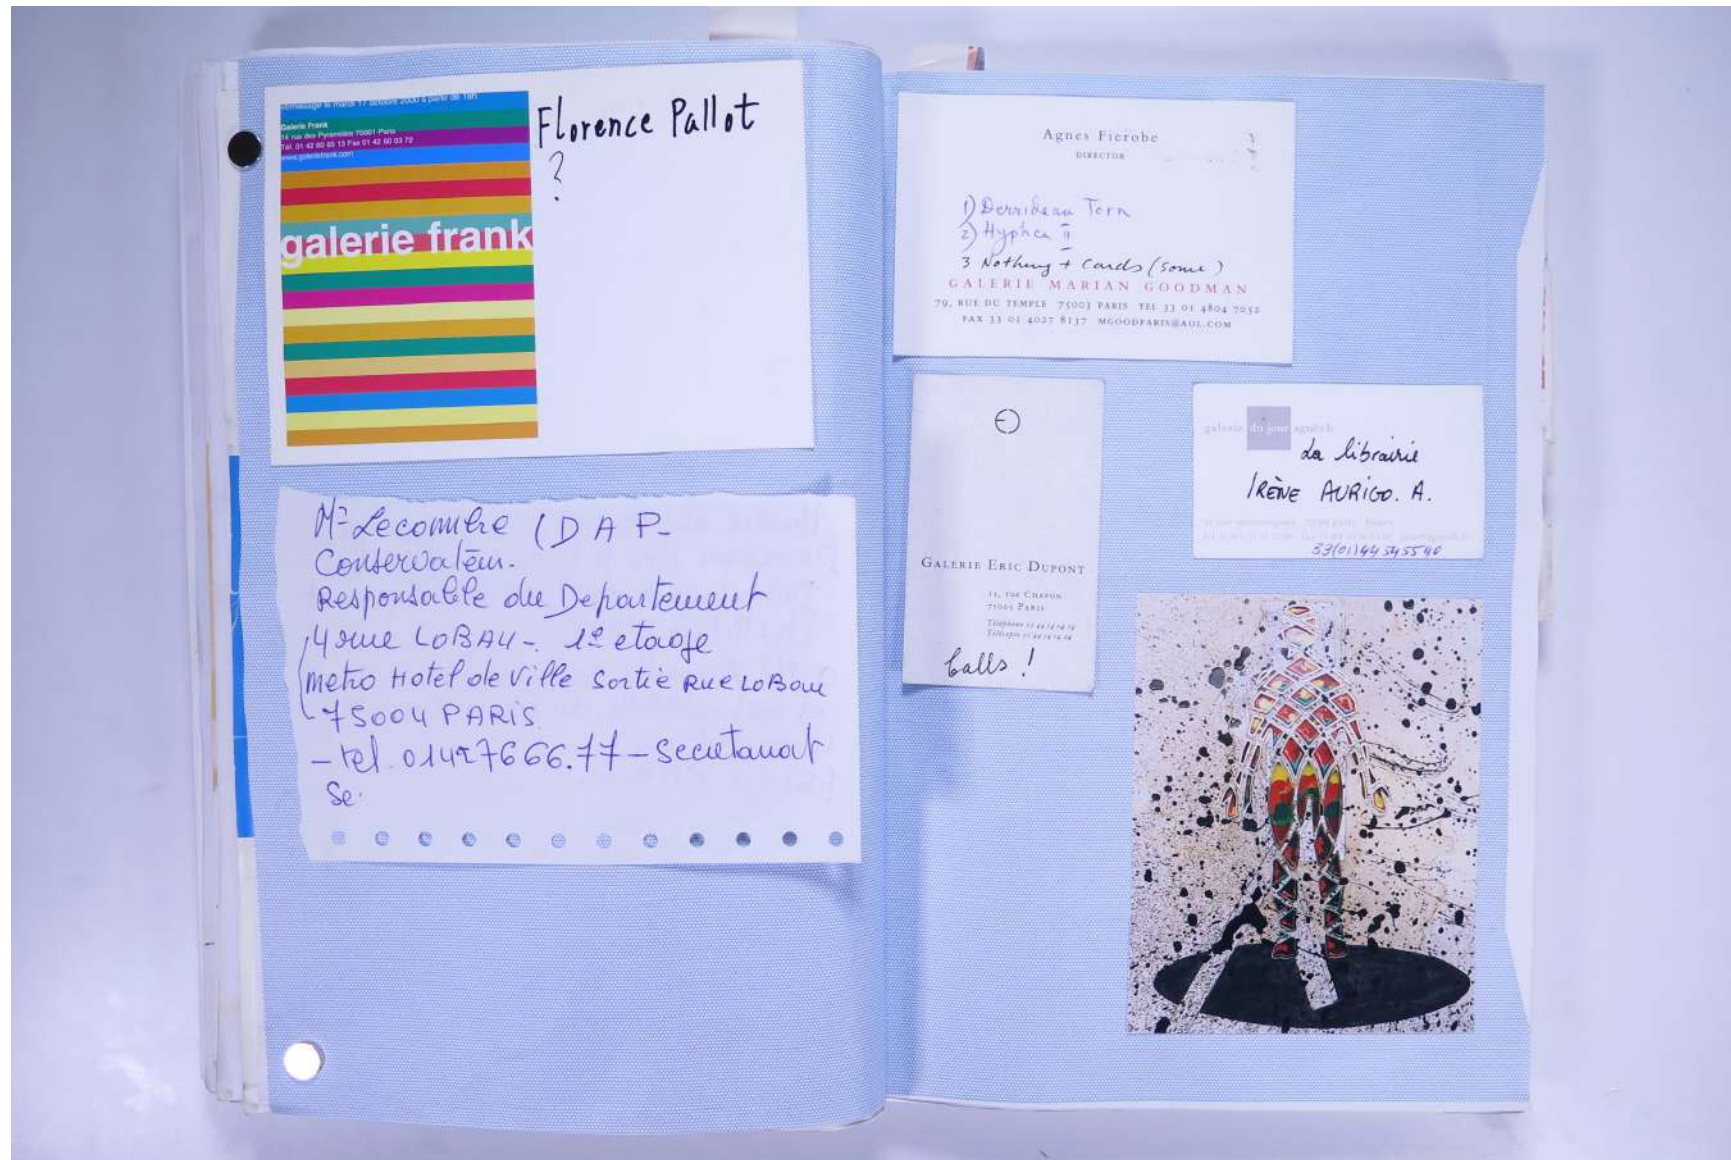 vernissage le mardi 17 octobre 2000 à partir de 18h
Galerie Frank
14 rue des Pyramides 75001 Paris
Tél. 01 42 60 65 13 Fax 01 42 60 03 72
www.galeriefrank.com
galerie frank
Florence Pallot
?
Mme Lecombre (DAP-
Conservateur.
Responsable du Departement
4 rue LOBAU - 1e etage
metro Hotel de Ville Sortie RUE LOBau
75004 PARIS
- tel. 01427666.77 - Secretariat
Se.
Agnes Fierobe
DIRECTOR
1) Derridean Torn
2) Hyphen II
3 Nothing + Cards (some)
GALERIE MARIAN GOODMAN
79, RUE DU TEMPLE 75003 PARIS TEL 33 01 4804 7052
FAX 33 01 4027 8137 MGOODPARIS@AOL.COM
GALERIE ERIC DUPONT
13, rue Chapon
75003 Paris
Téléphone
Télécopie
balls !
galerie du jour agnès b.
La librairie
IRÈNE AURIGO. A.
33(01)44545590